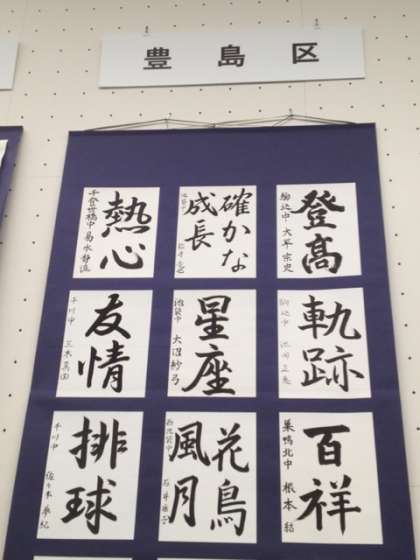 豊島区
登高
駒込中 大平 宗史
確かな
成長
熱心
千登世橋中 易水静流
軌跡
駒込中
星座
池袋中 大沼紗弓
友情
千川中 三木真由
百祥
巣鴨北中 根本 結
花鳥
風月
西池袋中
排球
千川中 佐々木